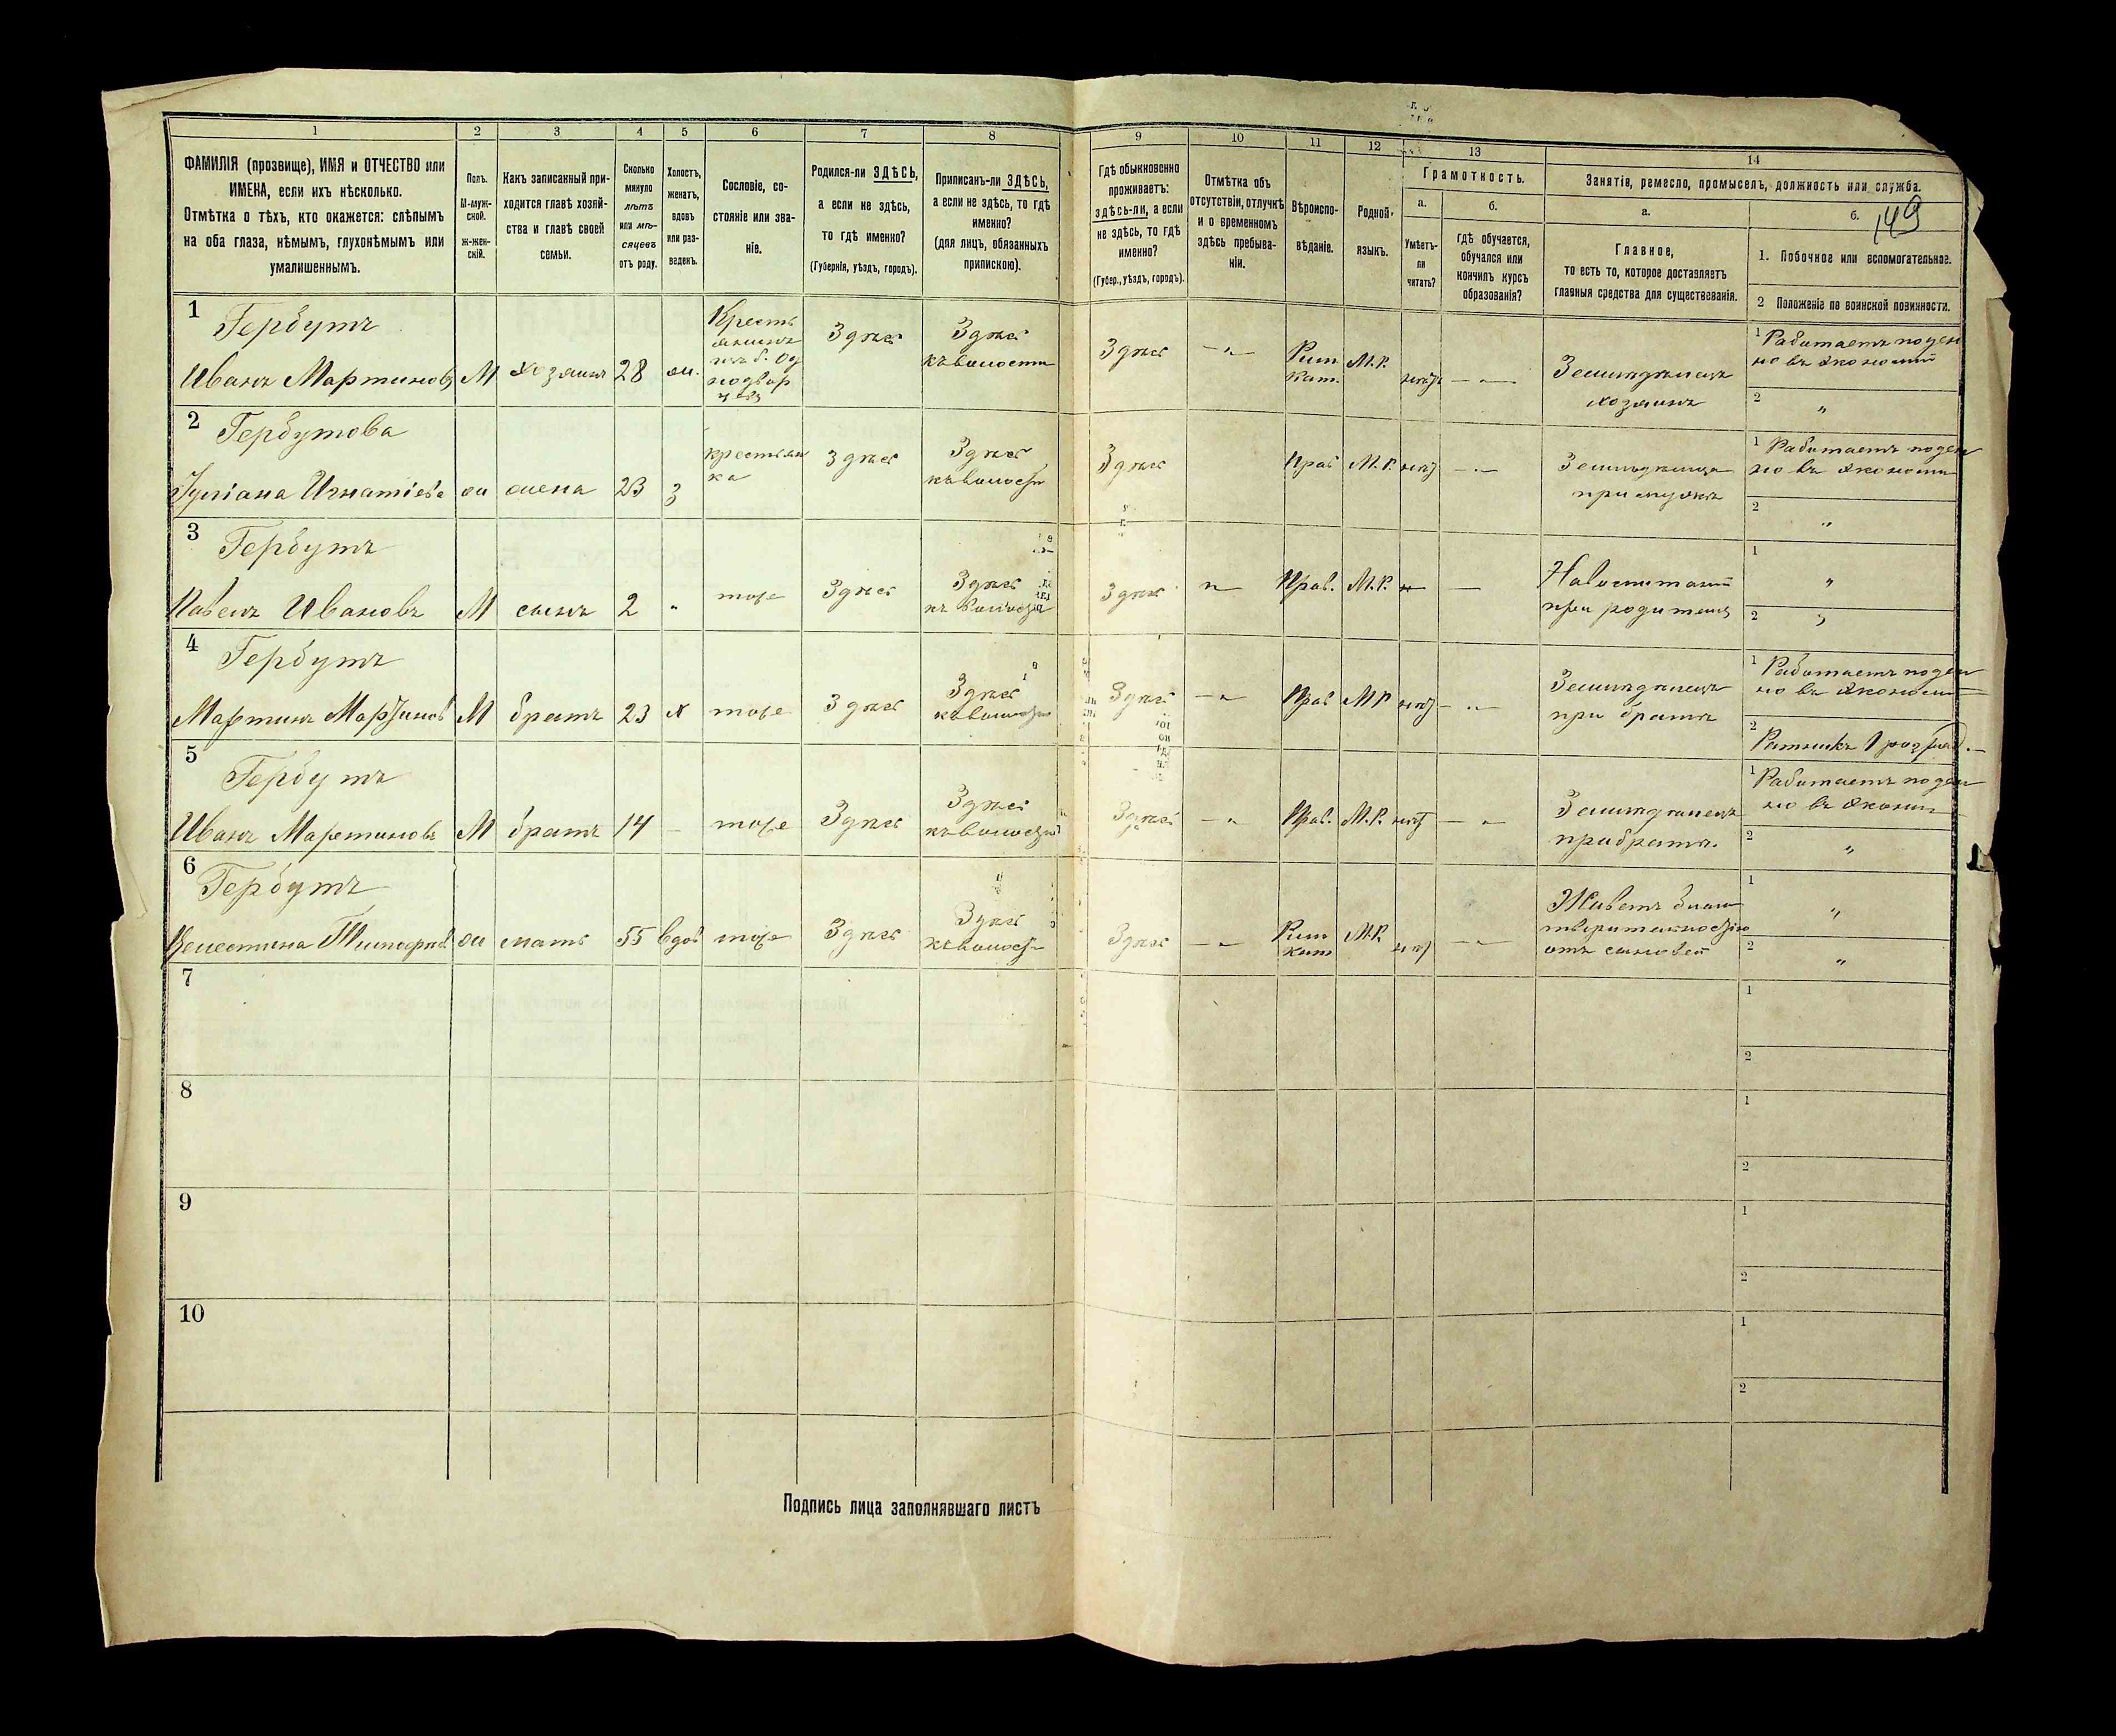 1 2 3 4 5 6 7 8 9 10 11 12 13 14
ФАМИЛІЯ (прозвище), ИМЯ и ОТЧЕСТВО или
ИМЕНА, если ихъ нѣсколько.
Отмѣтка о тѣхъ, кто окажется: слѣпымъ
на оба глаза, нѣмымъ, глухонѣмымъ или
умалишеннымъ.
Полъ.
М-муж-
ской.
ж-жен-
скій.
Какъ записанный при-
ходится главѣ хозяй-
ства и главѣ своей
семьи.
Сколько
минуло
лѣтъ
или мѣ-
сяцевъ
отъ роду.
Холостъ,
женатъ,
вдовъ
или раз-
веденъ.
Сословіе, со-
стояніе или зва-
ніе.
Родился-ли ЗДѢСЬ,
а если не здѣсь,
то гдѣ именно?
(Губернія, уѣздъ, городъ).
Приписанъ-ли ЗДѢСЬ,
а если не здѣсь, то гдѣ
именно?
(для лицъ, обязанныхъ
припискою).
Гдѣ обыкновенно
проживаетъ:
здѣсь-ли, а если
не здѣсь, то гдѣ
именно?
(Губер., уѣздъ, городъ).
Отмѣтка объ
отсутствіи, отлучкѣ
и о временномъ
здѣсь пребыва-
ніи.
Вѣроиспо-
вѣданіе.
Родной
языкъ.
Грамотность.
а.
Умѣетъ-
ли
читать?
б.
гдѣ обучается,
обучался или
кончилъ курсъ
образованія?
Занятіе, ремесло, промыселъ, должность или служба.
а.
Главное,
то есть то, которое доставляетъ
главныя средства для существованія.
б.
149
1. Побочное или вспомогательное.
2 Положеніе по воинской повинности.
1 Гербутъ
Иванъ Мартиновъ М хозяинъ 28 ж.
Кресть
янинъ
изъ б. од
нодвор
цевъ
Здѣсь
Здѣсь
къ волости
Здѣсь — „
Рим.
Кат.
М.Р. нѣтъ — „ —
Земледѣлецъ
хозяинъ
1 Работаетъ поден
но въ экономіи
2 „
2 Гербутова
Іуліана Игнатіева ж жена 23 З
крестьян
ка
Здѣсь
Здѣсь
къ волости
Здѣсь
Прав М.Р. нѣтъ — „ —
Земледѣлица
при мужѣ
1 Работаетъ поден
но въ экономіи
2 „
3 Гербутъ
Павелъ Ивановъ М сынъ 2 „ тоже Здѣсь
Здѣсь
къ волости
Здѣсь Прав. М.Р. —
На воспитаніи
при родителѣ
1 „
2 „
4 Гербутъ
Мартинъ Мартиновъ М братъ 23 х тоже Здѣсь
Здѣсь
къ волости
Здѣсь — „ Прав М Р нѣтъ — „ —
Земледѣлецъ
при братѣ
1 Работаетъ поден
но въ экономіи
2 Ратникъ 1 разряд.
5 Гербутъ
Иванъ Мартиновъ М братъ 14 — тоже Здѣсь
Здѣсь
къ волости
Здѣсь — „ Прав. М.Р. нѣтъ — „
Земледѣлецъ
при братѣ.
1 Работаетъ поден
но въ эконом
2 „
6 Гербутъ
Целестина ж мать 55 вдов тоже Здѣсь
Здѣсь
къ волости
Здѣсь — „ —
Рим
Кат
М.Р. нѣтъ — „ —
Живетъ благо
творительностію
отъ сыновей
1 „
2 „
7
1
2
8
1
2
9
1
2
10
1
2
Подпись лица заполнявшаго листъ